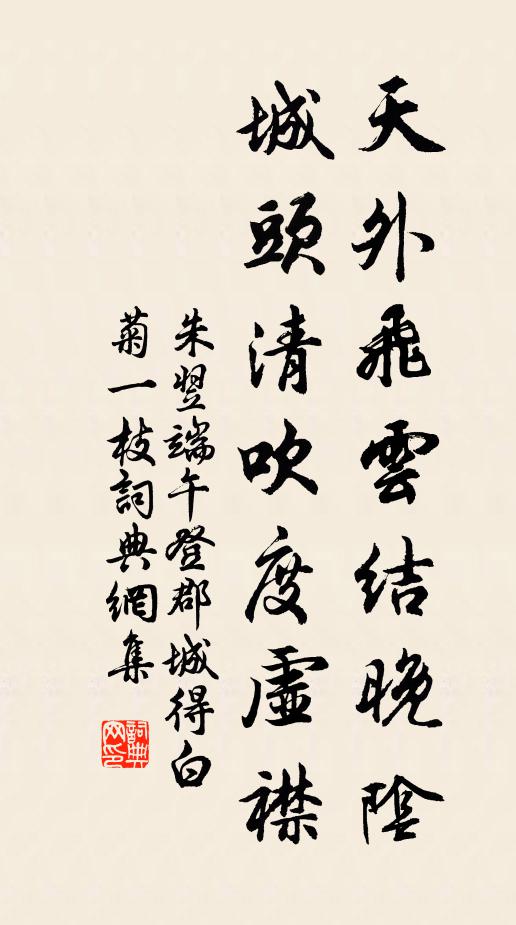 天外飛雲結晚陰
城頭清吹度虛襟
朱翌端午登郡城得白
菊一枝詞典網集
詞典
网印